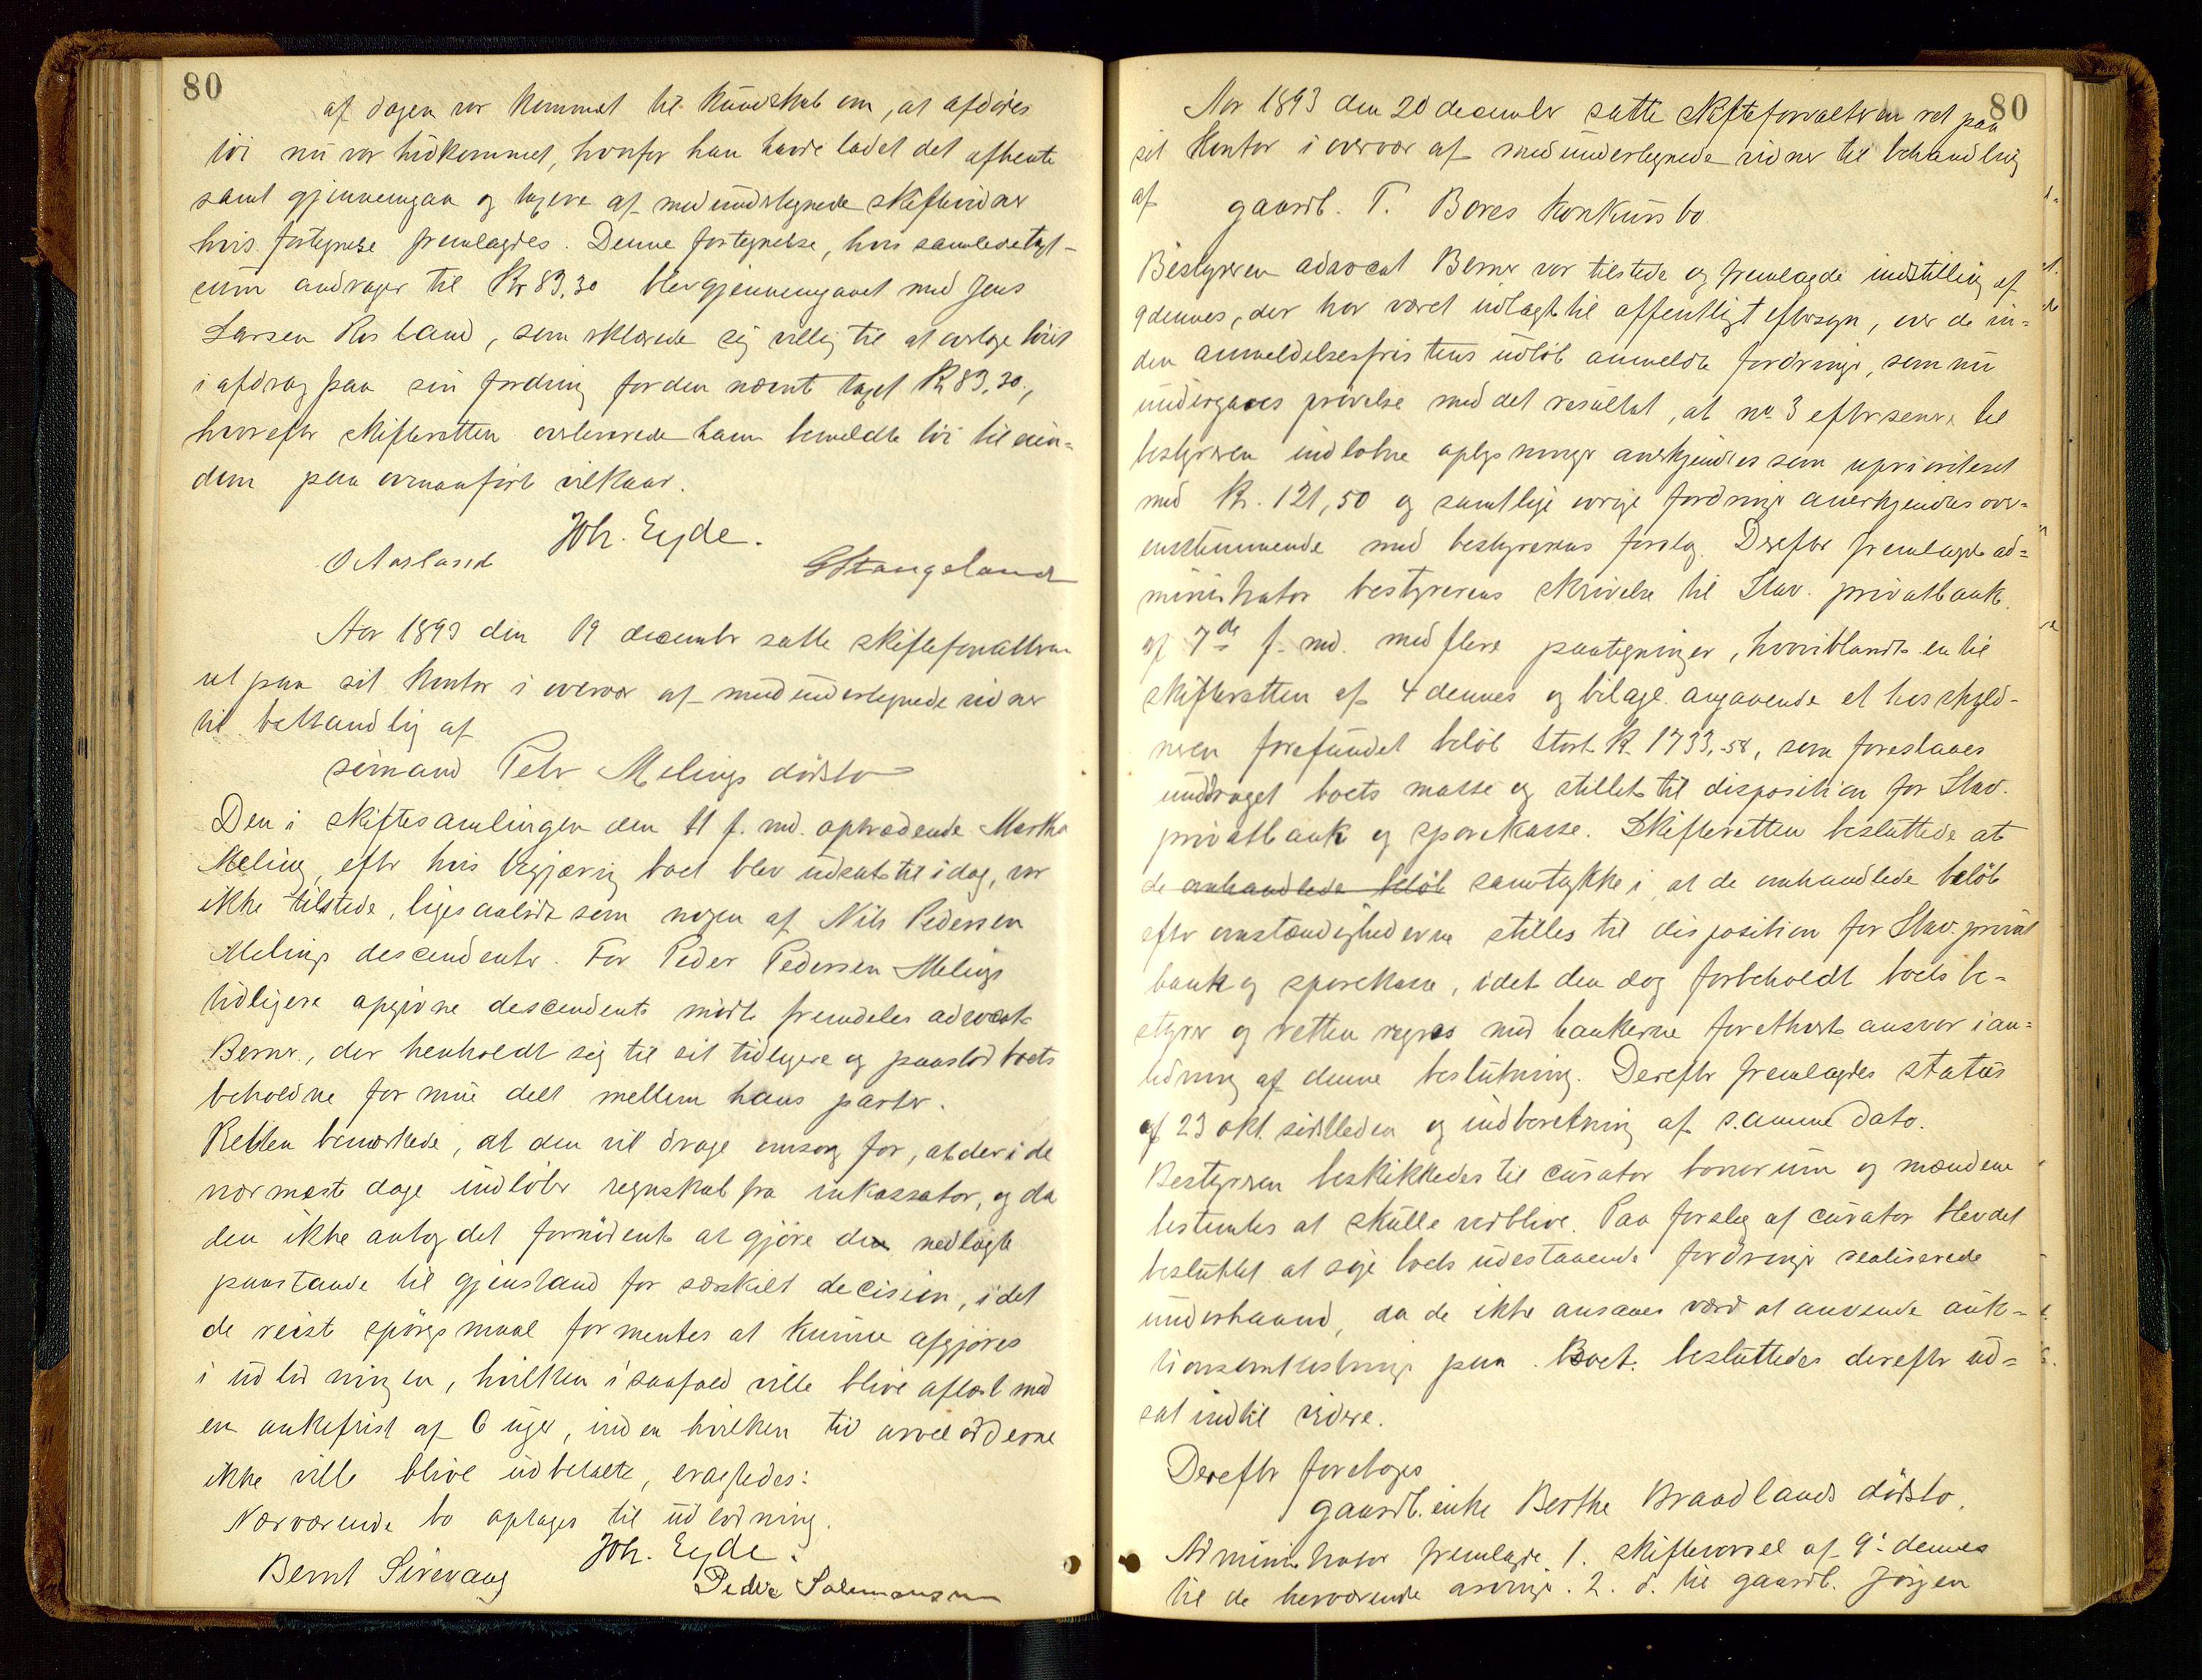 80
af dagen var kommet til kundskab om, at afdødes
töi nu var hidkommet, hvorfor han havde ladet det afhente
samt gjennemgaa og taxere af medundertegnede skiftevidner
hvis fortegnelse fremlagdes. Denne fortegnelse, hvis samlede taxt-
sum andrager til Kr 89,30 blev gjennemgaaet med Jens
Larsen Rosland, som erklærede sig villig til at overtage töiet
i afdrag paa sin fordring for den nævnte taxt Kr 89,30,
hvorefter skifteretten overleverede ham bemeldte töi til eien-
dom paa ovenanförte vilkaar.
Joh. Eyde.
O Aasland GStangeland
Aar 1893 den 19 december satte skifteforvalteren
ret paa sit kontor i overvær af medundertegnede vidner
til behandling af
sömand Peter Melings dödsbo
Den i skiftesamlingen den 11 f. md. optrædende Martha
Meling, efter hvis begjæring boet blev udsat til idag, var
ikke tilstede, ligesaalidt som nogen af Nils Pedersen
Melings descendenter. For Peder Pedersen Melings
tidligere opgivne descendents mödte fremdeles advocat
Berner, der henholdt sig til sit tidligere og paastod boets
beholdne formue delt mellem hans parter.
Retten bemærkede, at den vil drage omsorg for, at der i de
nærmeste dage indløber regnskab fra inkassator, og da
den ikke antog det fornödent at gjöre den nedlagte
paastande til gjenstand for særskilt decision, idet
de reiste spörgsmaal formentes at kunne afgjöres
i udlodningen, hvilken i saafald ville blive aflæst med
en ankefrist af 6 uger, inden hvilken tid arvelodderne
ikke ville blive udbetalte, eragtedes:
Nærværende bo optages til udlodning.
Joh. Eyde.
Bernt Sirevaag Peder Salomonsen
80
Aar 1893 den 20 december satte skifteforvalteren ret paa
sit kontor i overvær af medundertegnede vidner til behandling
af gaardb. T. Bores konkursbo.
Bestyreren advocat Berner var tilstede og fremlagde indstilling af
9 dennes, der har været udlagt til offentligt eftersyn, over de in-
den anmeldelsesfristens udlöb anmeldte fordringer, som nu
undergaves prövelse med det resultat, at no. 3 efter senere til
bestyreren indlobne oplysninger anerkjendtes som uprioriteret
med Kr. 121,50 og samtlige övrige fordringer anerkjendtes over-
ensstemmende med bestyrerens forslag. Derefter fremlagde ad-
ministrator bestyrerens skrivelse til Stav. privatbank
af 7de f. md. med flere paategninger, hvoriblandt en til
skifteretten af 4 dennes og bilage angaaende et hos skyld-
neren forefundet belöb stort Kr. 1733,58, som foreslaaes
unddraget boets masse og stillet til disposition for Stav.
privatbank og sparekasse. Skifteretten besluttede at
de omhandlede belöb samtykke i, at de omhandlede belöb
efter omstændighederne stilles til disposition for Stav. privat
bank og sparekasse, idet den dog forbeholdt boets be-
styrer og retten regres mod bankerne for ethvert ansvar i an-
ledning af denne beslutning. Derefter fremlagdes status
af 23 okt. sidstleden og indberetning af samme dato.
Bestyreren beskikkedes til curator bonorum og mændene
bestemtes at skulle vedblive. Paa forslag af curator blev det
besluttet at söge boets udestaaende fordringer realiserede
underhaand, da de ikke ansaaes værd at anvende auk-
tionsomkostninger paa. Boet besluttedes derefter ud-
sat indtil videre.
Derefter foretoges
gaardb.enke Berthe Braadlands dödsbo.
Administrator fremlagde 1. skiftevarsel af 9. dennes
til de herværende arvinger. 2. d. til gaardb. Jörgen